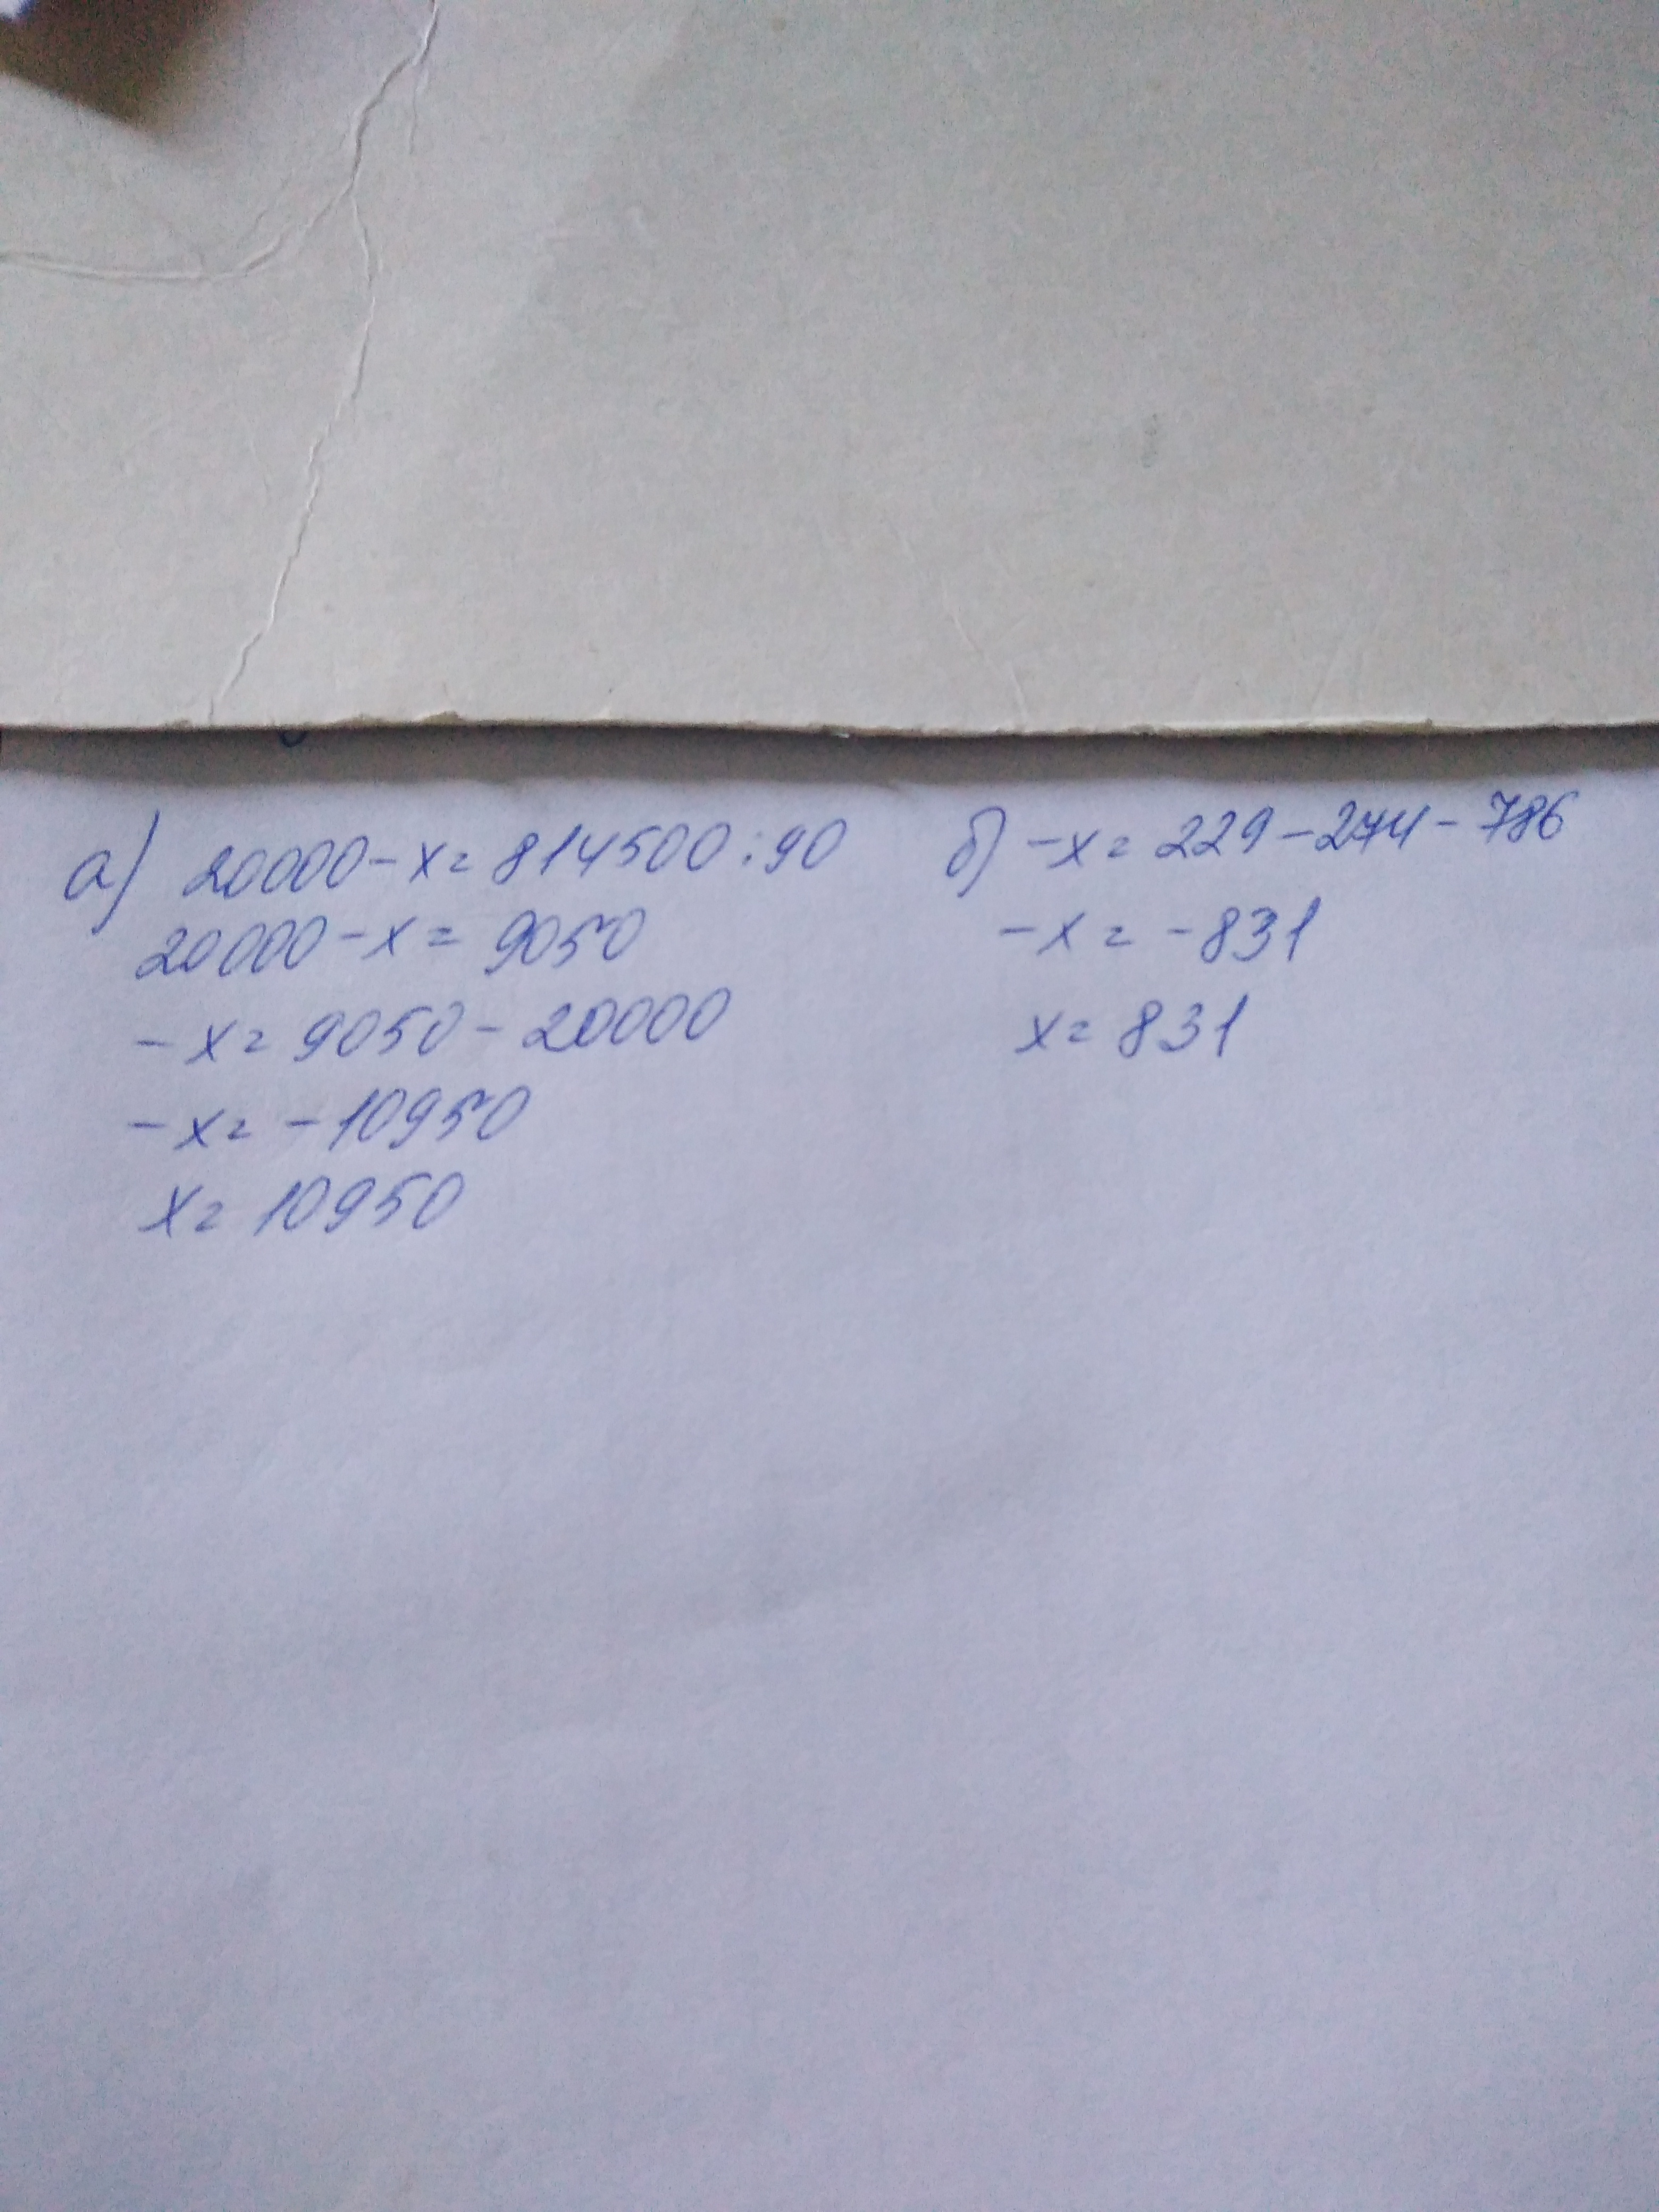 а) 20000-x=814500:90
20000-x=9050
-x=9050-20000
-x=-10950
x=10950
б) -x=229-274-786
-x=-831
x=831